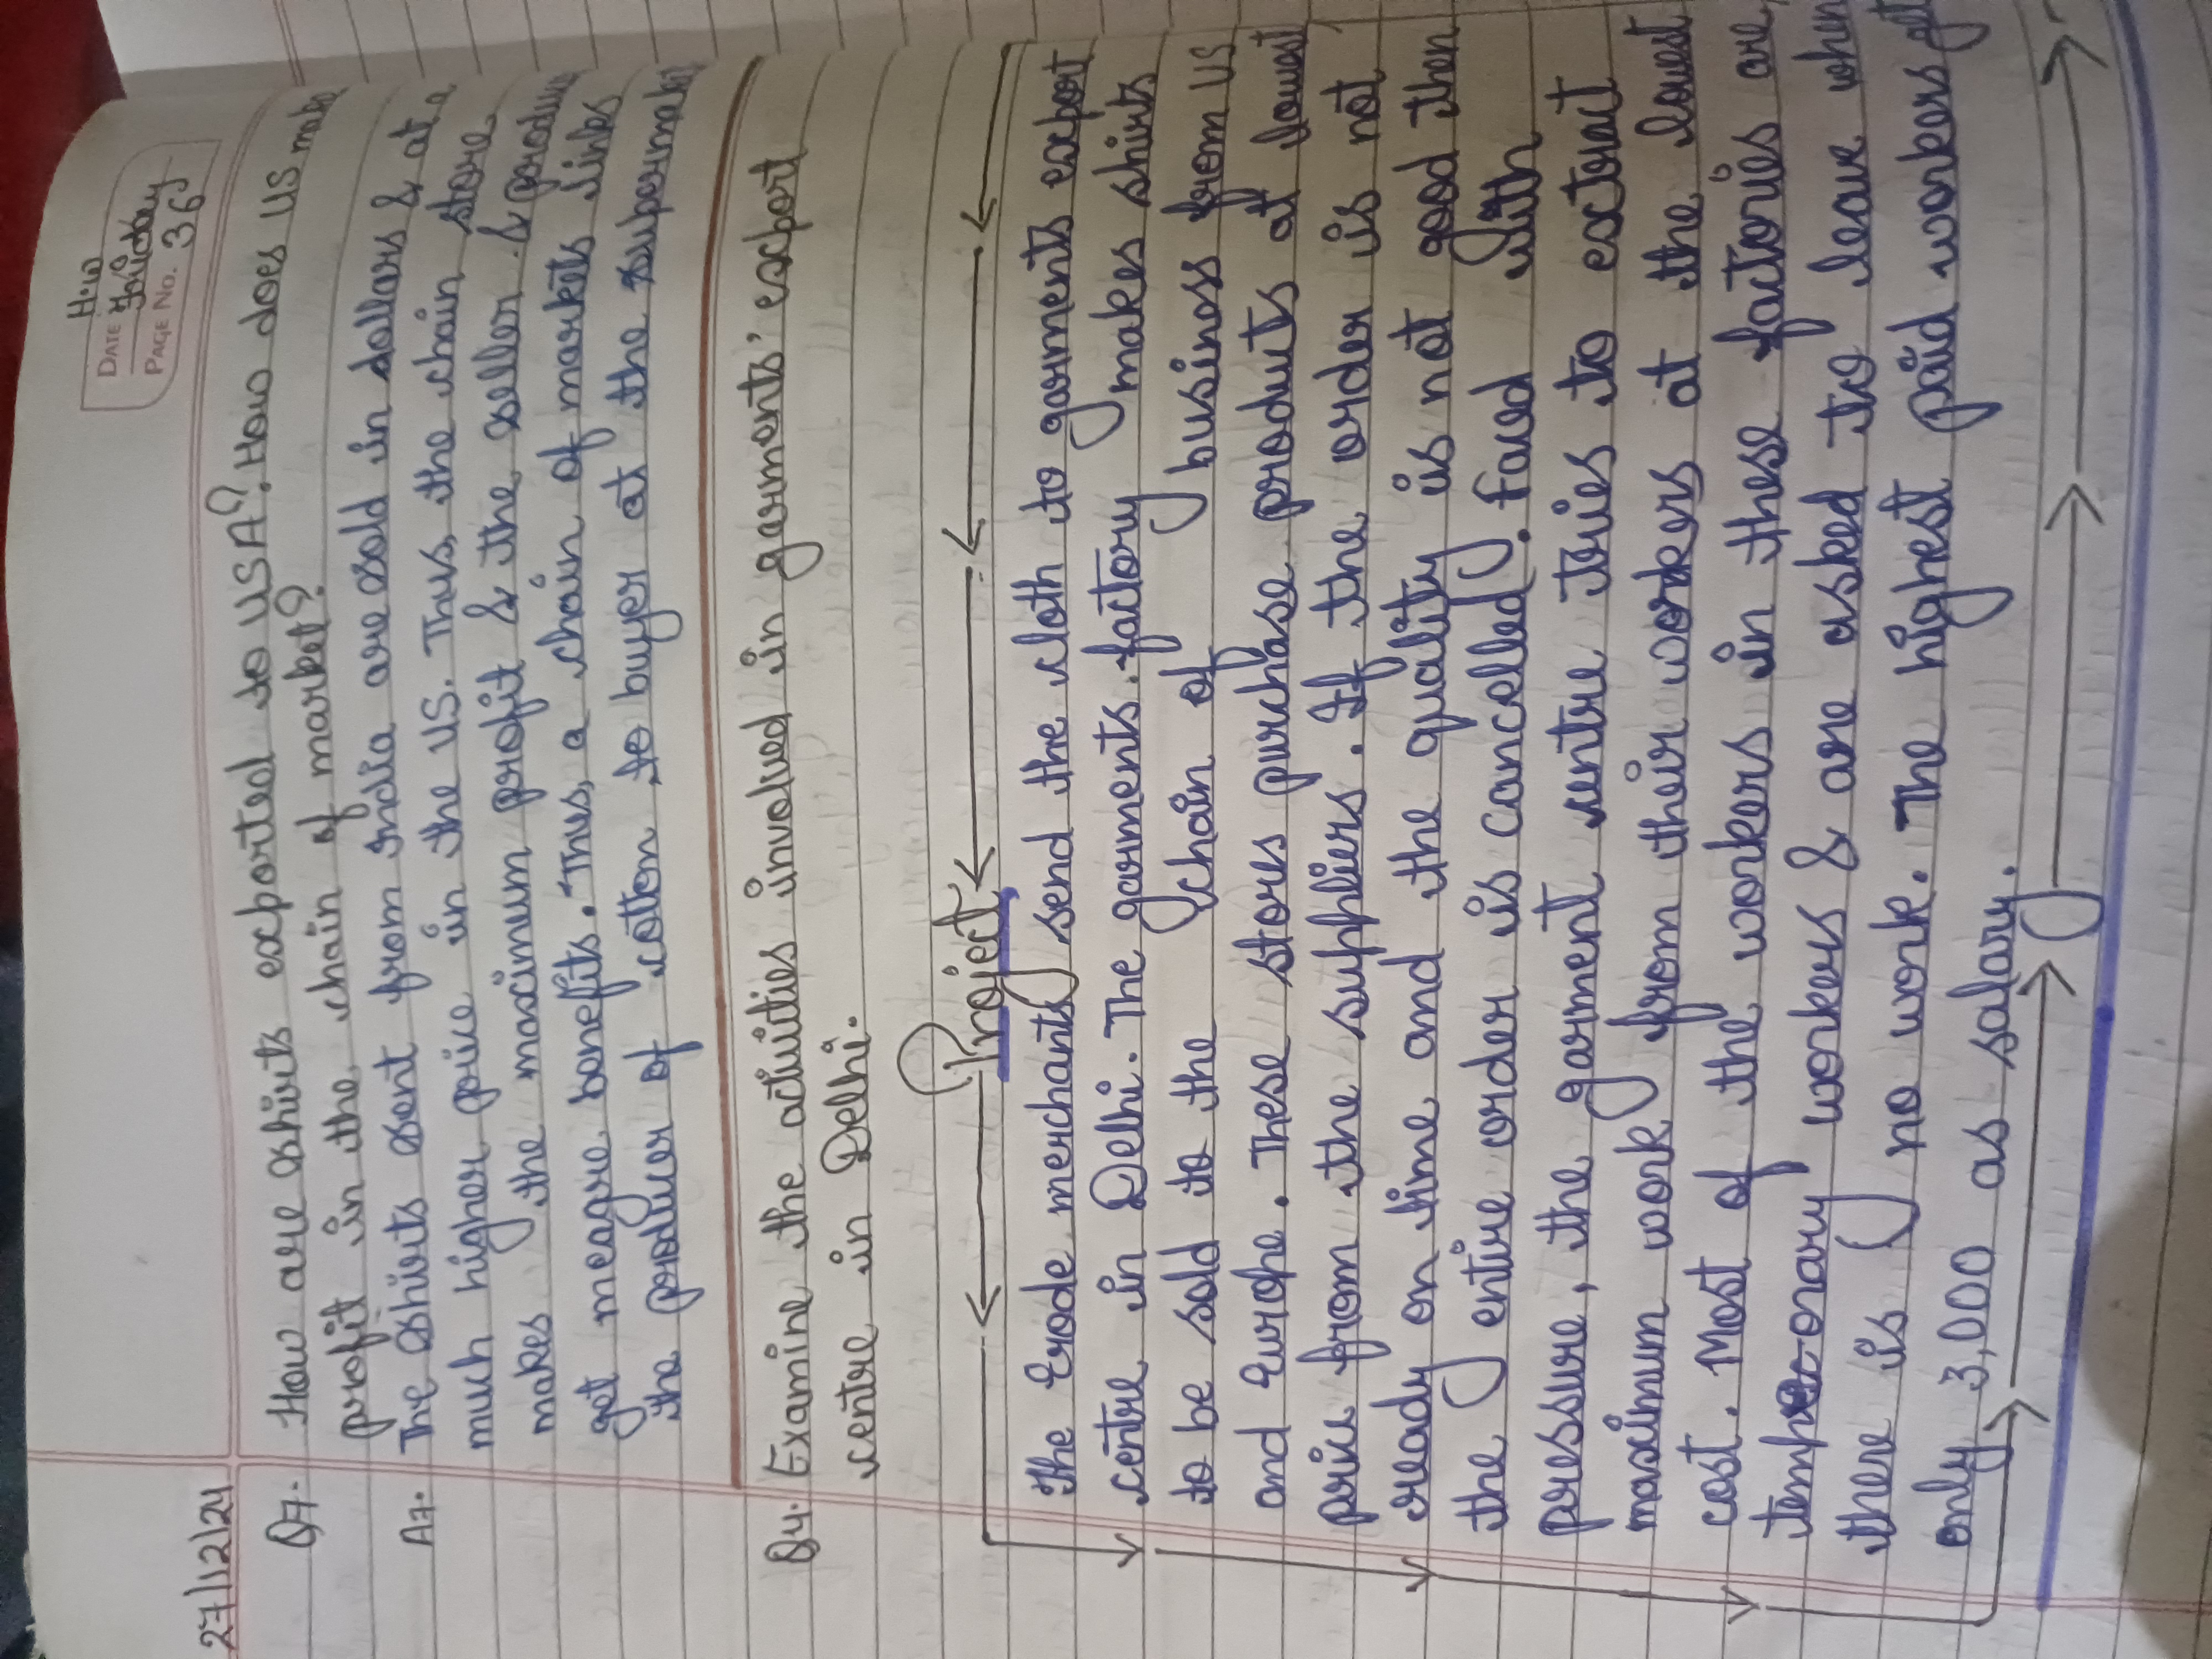 H.W
DATE Friday
PAGE NO. 36
27/12/24
Q7. How are shirts exported to USA? How does US make
profit in the chain of market?
A7. The shirts sent from India are sold in dollars & at a
much higher price in the US. Thus, the chain store
makes the maximum profit & the seller & produ
get meagre benefits. Thus, a chain of markets links
the producer of cotton to buyer at the supermak
Q4. Examine the activities involved in garments' export
centre in Delhi.
Project
The Erode merchants send the cloth to garments export
centre in Delhi. The garments factory makes shirts
to be sold to the chain of business from US
and Europe. These stores purchase products at lowest
price from the suppliers. If the order is not
ready on time and the quality is not good then
the entire order is cancelled. Faced with
pressure, the garment centre tries to extract
maximum work from their workers at the lowest
cost. Most of the workers in these factories are
temporary workers & are asked to leave when
there is no work. The highest paid workers get
only 3,000 as salary.